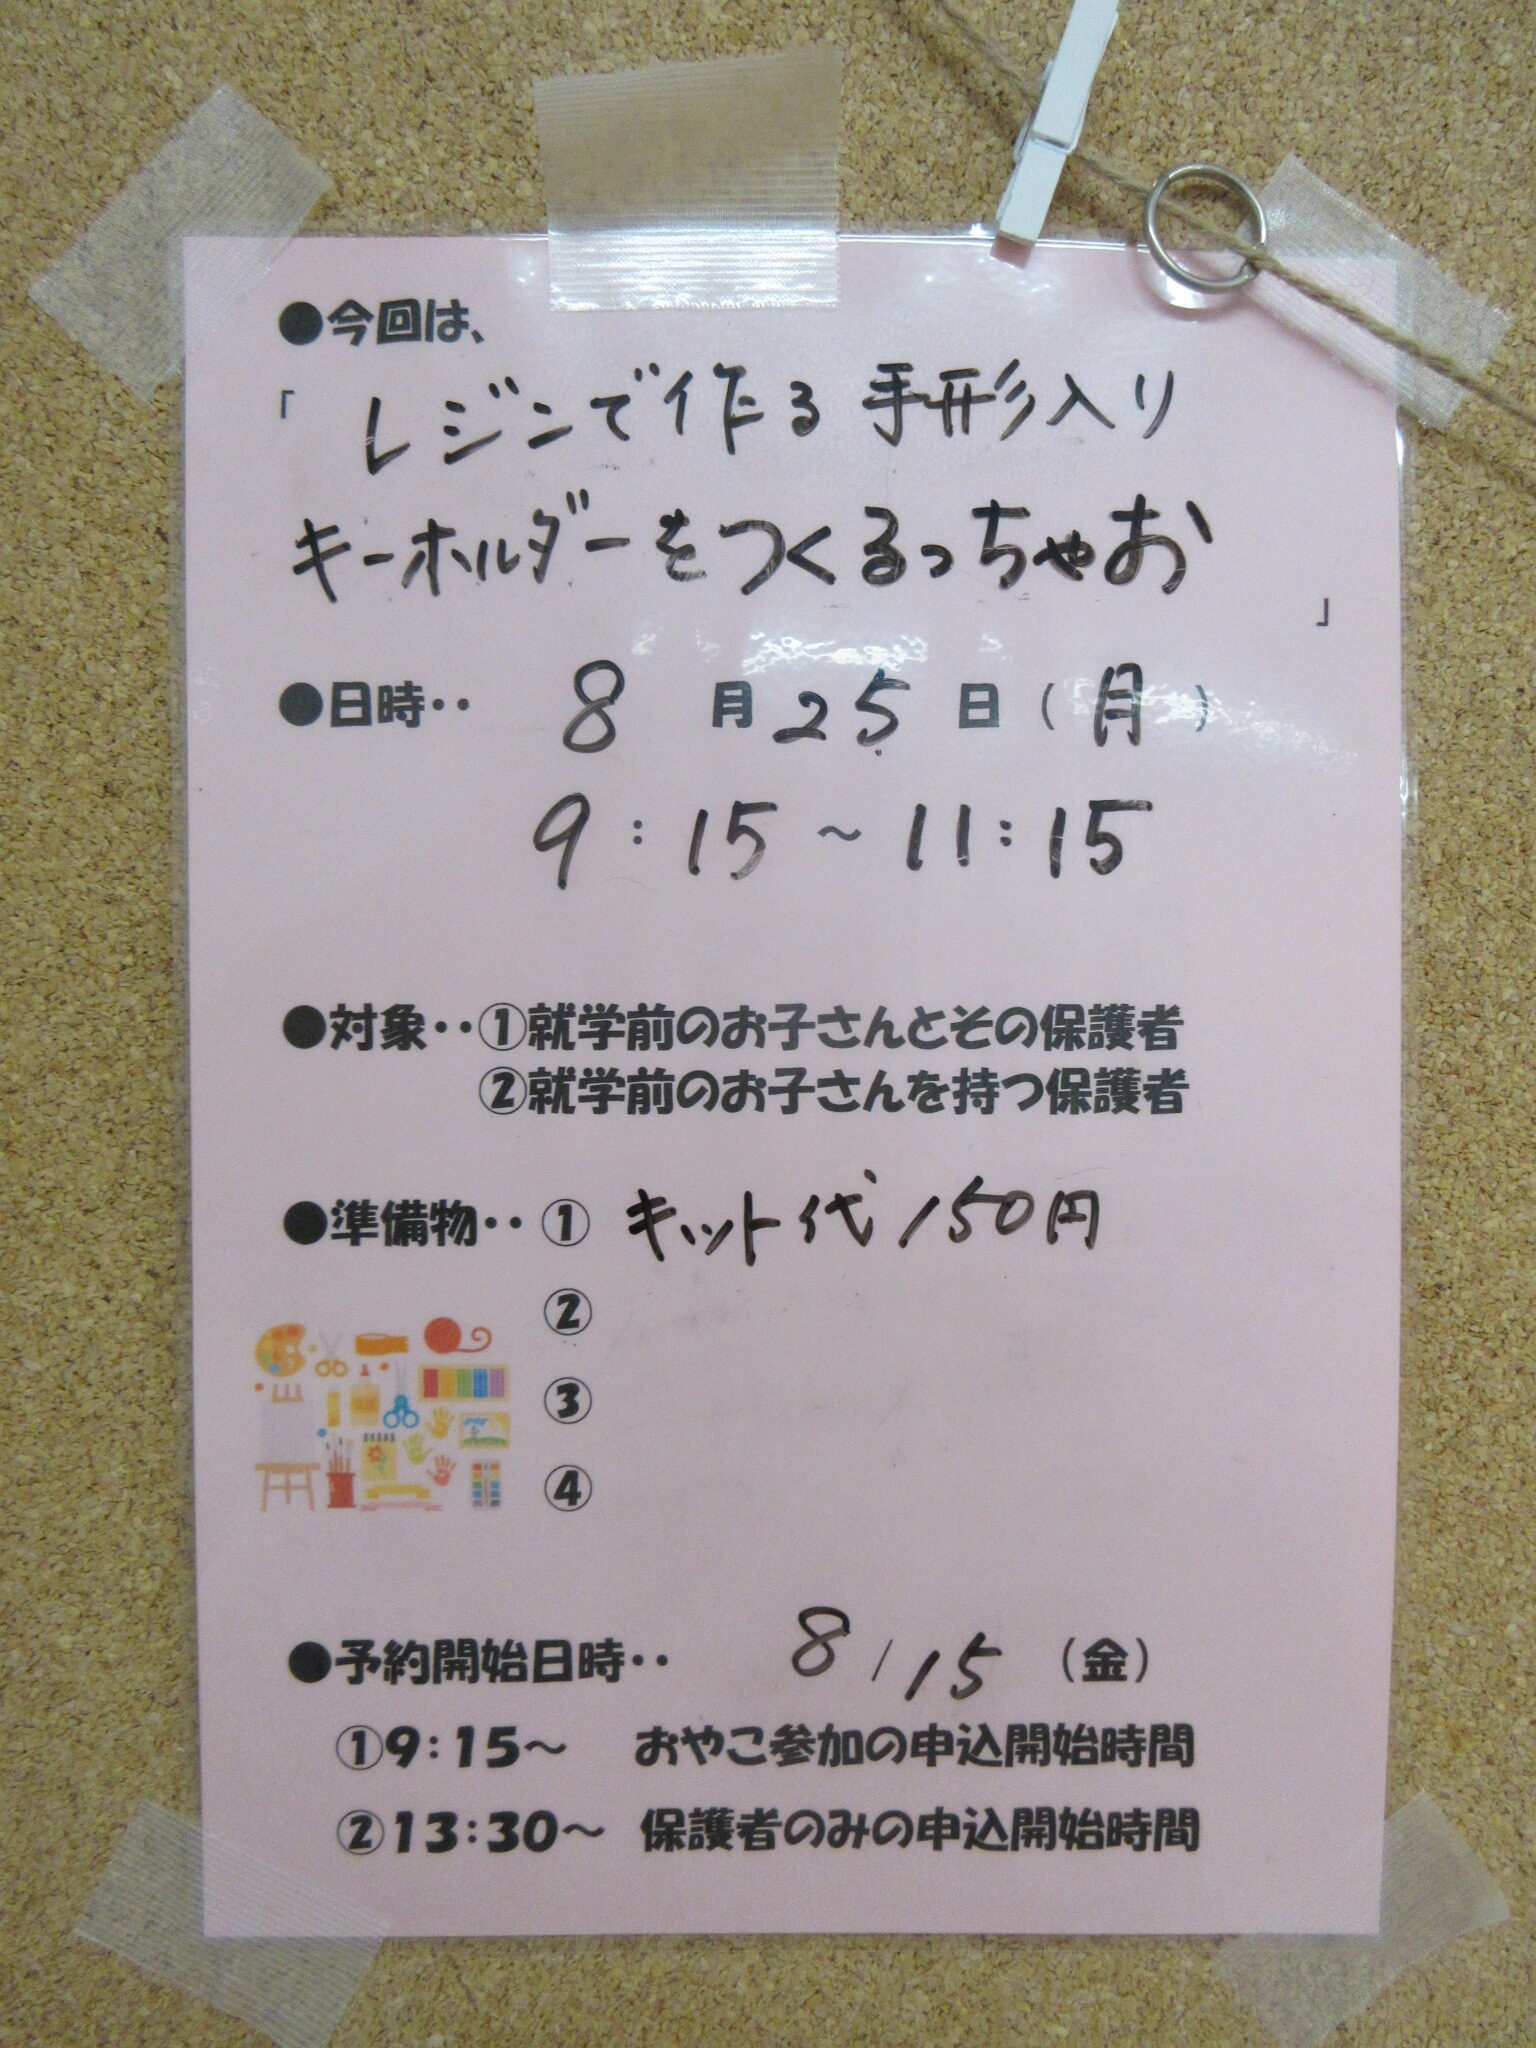 ●今回は、
「レジンで作る 手形入り
キーホルダーをつくるっちゃお
」
●日時‥ 8 月 25 日 ( 月 )
9 : 15 ～ 11 : 15
●対象‥①就学前のお子さんとその保護者
②就学前のお子さんを持つ保護者
●準備物‥ ① キット代 150円
②
③
④
●予約開始日時‥ 8 / 15 (金)
①9:15～ おやこ参加の申込開始時間
②13:30～ 保護者のみの申込開始時間